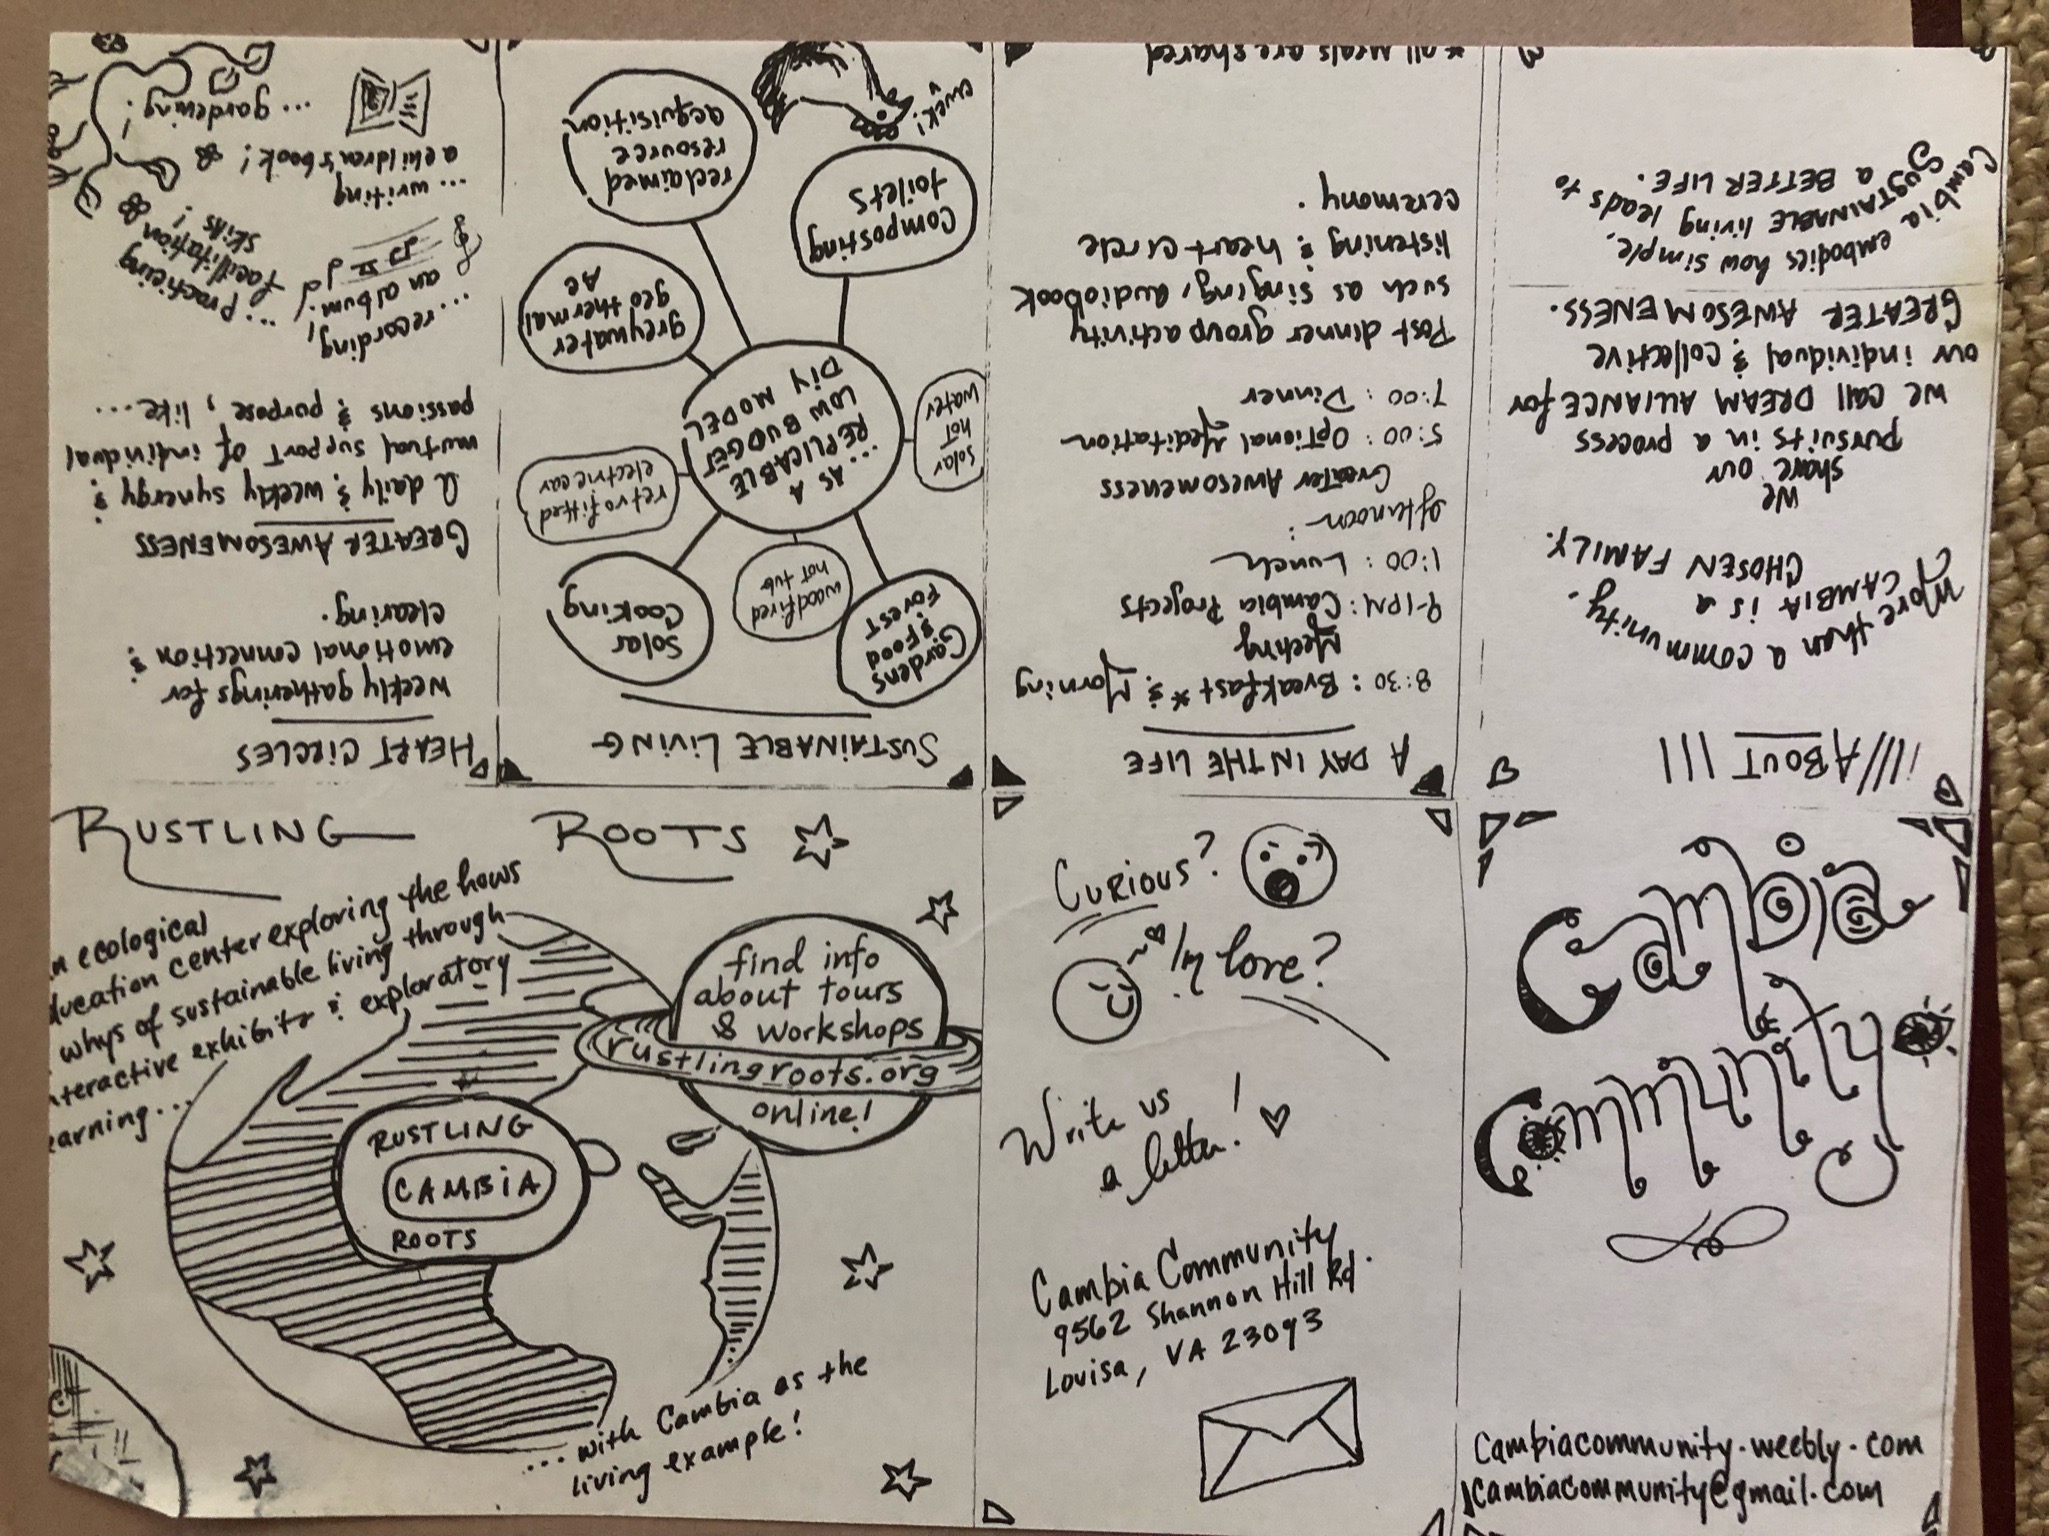 Cambia
Community
cambiacommunity.weebly.com
cambiacommunity@gmail.com
ABOUT
More than a community,
CAMBIA is a
CHOSEN FAMILY.
We
share our
pursuits in a process
we call DREAM ALLIANCE for
our individual & collective
GREATER AWESOMENESS.
Cambia embodies how simple,
SUSTAINABLE living leads to
a BETTER LIFE.
A DAY IN THE LIFE
8:30: Breakfast* & Morning
Meeting
9-1PM: Cambia Projects
1:00: Lunch
afternoon:
Greater Awesomeness
5:00: Optional Meditation
7:00: Dinner
Post dinner group activity
such as singing, audiobook
listening & heart circle
ceremony.
*all meals are shared
SUSTAINABLE LIVING
Gardens
& Food
Forest
woodfired
hot tub
Solar
Cooking
...AS A
REPLICABLE
LOW BUDGET
DIY MODEL
solar
hot
water
retrofitted
electric car
greywater
geothermal
AC
Composting
toilets
reclaimed
resource
acquisition
cwek!
HEART CIRCLES
weekly gatherings for
emotional connection &
clearing.
GREATER AWESOMENESS
A daily & weekly synergy &
mutual support of individual
passions & purpose, like...
...recording
an album!
...practicing
facilitation
skills!
...writing
a children's book!
...gardening!
RUSTLING ROOTS
an ecological
education center exploring the hows
& whys of sustainable living through
interactive exhibits & exploratory
learning...
RUSTLING
CAMBIA
ROOTS
find info
about tours
& workshops
rustlingroots.org
online!
...with Cambia as the
living example!
Curious?
In love?
Write us
a letter!
Cambia Community
9562 Shannon Hill Rd.
Louisa, VA 23093